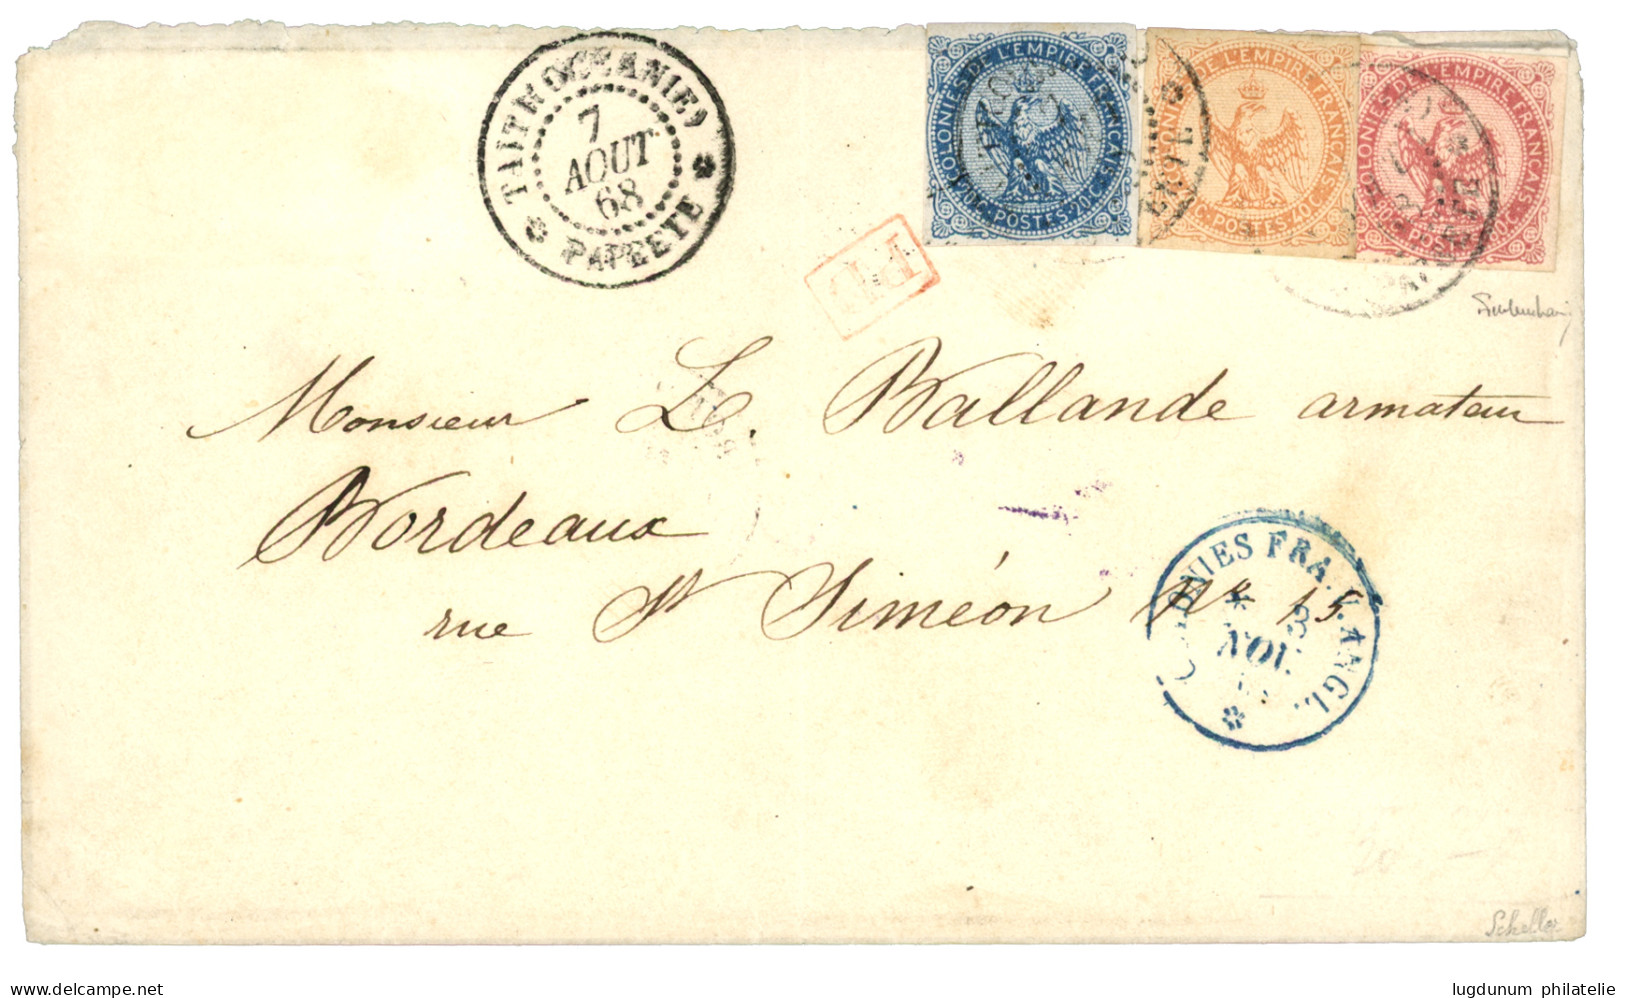 TAITI (OCEANIE)
7
AOUT
68
PAPEETE
COLONIES DE L'EMPIRE FRANÇAIS
20C. POSTES. 20C.
DE L'EMPIRE FRANÇAIS
C. POSTES. 40C.
COLONIES DE L'EMPIRE FRANÇAIS
PD
Monsieur L. Ballande armateur
Bordeaux
rue St Siméon No 15
COLONIES FRA. V. ANGL.
8
NOV.
Scheller
lugdunum philatelie